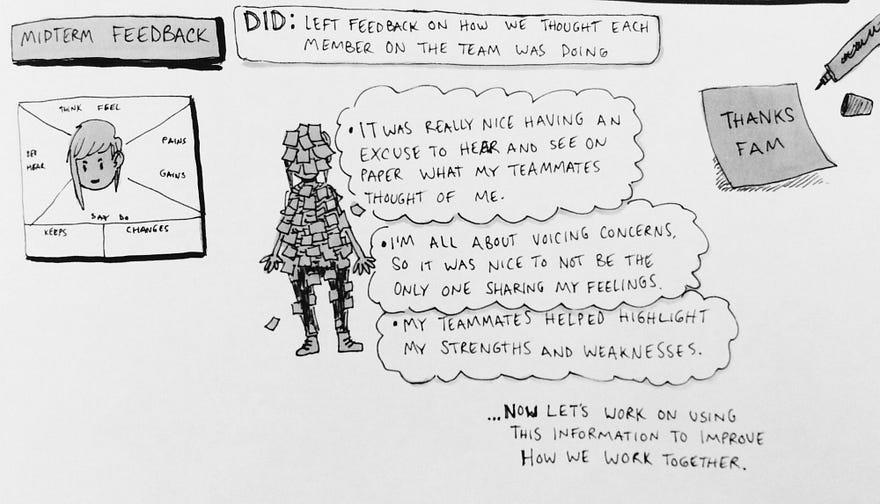 MIDTERM FEEDBACK
DID: LEFT FEEDBACK ON HOW WE THOUGHT EACH
MEMBER ON THE TEAM WAS DOING
THINK FEEL
SEE
HEAR
PAINS
GAINS
SAY DO
KEEPS
CHANGES
• IT WAS REALLY NICE HAVING AN
EXCUSE TO HEAR AND SEE ON
PAPER WHAT MY TEAMMATES
THOUGHT OF ME.
• I'M ALL ABOUT VOICING CONCERNS,
SO IT WAS NICE TO NOT BE THE
ONLY ONE SHARING MY FEELINGS.
• MY TEAMMATES HELPED HIGHLIGHT
MY STRENGTHS AND WEAKNESSES.
...NOW LET'S WORK ON USING
THIS INFORMATION TO IMPROVE
HOW WE WORK TOGETHER.
THANKS
FAM